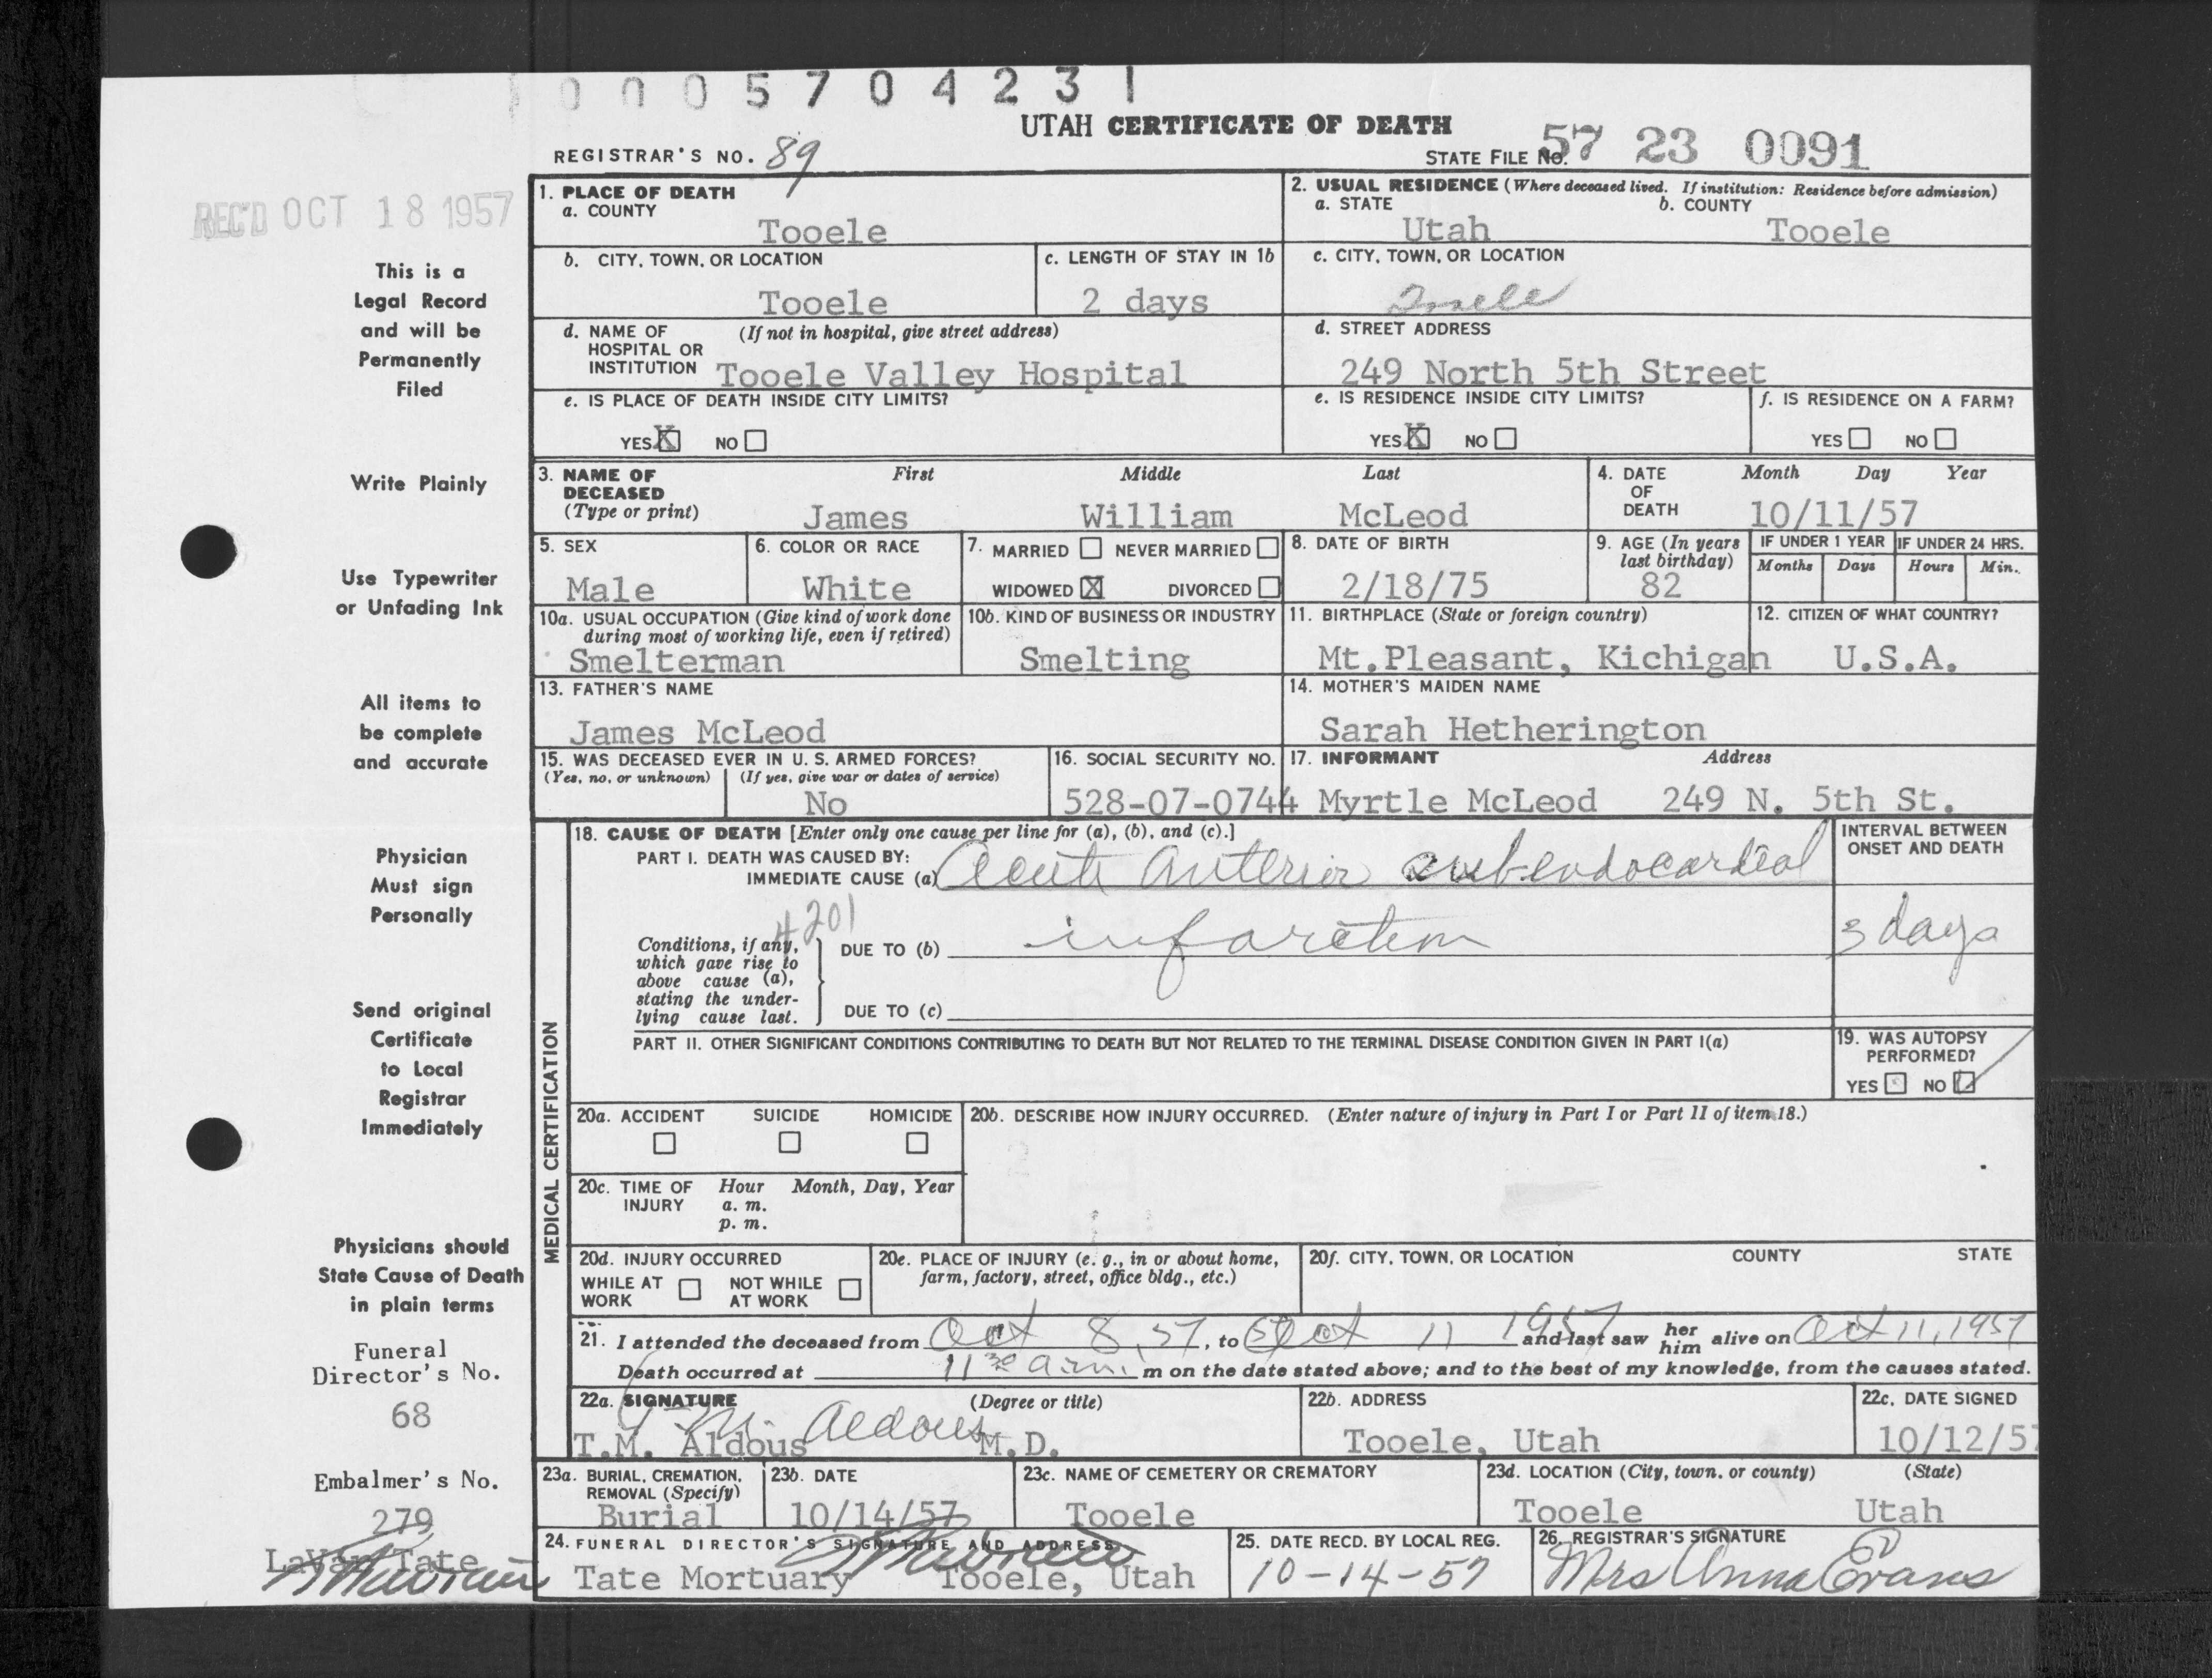 000570423 1
UTAH CERTIFICATE OF DEATH
REGISTRAR'S NO. 89
STATE FILE No. 57 23 0091
REC'D OCT 18 1957
This is a
Legal Record
and will be
Permanently
Filed
Write Plainly
Use Typewriter
or Unfading Ink
All items to
be complete
and accurate
Physician
Must sign
Personally
Send original
Certificate
to Local
Registrar
Immediately
Physicians should
State Cause of Death
in plain terms
Funeral
Director's No.
68
Embalmer's No.
279
LaVar Tate
1. PLACE OF DEATH
a. COUNTY
Tooele
2. USUAL RESIDENCE (Where deceased lived. If institution: Residence before admission)
a. STATE b. COUNTY
Utah Tooele
b. CITY, TOWN, OR LOCATION
Tooele
c. LENGTH OF STAY IN 1b
2 days
c. CITY, TOWN, OR LOCATION
Tooele
d. NAME OF (If not in hospital, give street address)
HOSPITAL OR
INSTITUTION Tooele Valley Hospital
d. STREET ADDRESS
249 North 5th Street
e. IS PLACE OF DEATH INSIDE CITY LIMITS?
YES X NO
e. IS RESIDENCE INSIDE CITY LIMITS?
YES X NO
f. IS RESIDENCE ON A FARM?
YES NO
3. NAME OF First Middle Last
DECEASED
(Type or print) James William McLeod
4. DATE Month Day Year
OF
DEATH 10/11/57
5. SEX
Male
6. COLOR OR RACE
White
7. MARRIED NEVER MARRIED
WIDOWED X DIVORCED
8. DATE OF BIRTH
2/18/75
9. AGE (In years
last birthday)
82
IF UNDER 1 YEAR IF UNDER 24 HRS.
Months Days Hours Min.
10a. USUAL OCCUPATION (Give kind of work done
during most of working life, even if retired)
Smelterman
10b. KIND OF BUSINESS OR INDUSTRY
Smelting
11. BIRTHPLACE (State or foreign country)
Mt.Pleasant, Kichigan
12. CITIZEN OF WHAT COUNTRY?
U.S.A.
13. FATHER'S NAME
James McLeod
14. MOTHER'S MAIDEN NAME
Sarah Hetherington
15. WAS DECEASED EVER IN U. S. ARMED FORCES?
(Yes, no, or unknown) (If yes, give war or dates of service)
No
16. SOCIAL SECURITY NO.
528-07-0744
17. INFORMANT Address
Myrtle McLeod 249 N. 5th St.
MEDICAL CERTIFICATION
18. CAUSE OF DEATH [Enter only one cause per line for (a), (b), and (c).]
PART I. DEATH WAS CAUSED BY:
IMMEDIATE CAUSE (a) Acute Anterior subendocardial
4201
Conditions, if any,
which gave rise to
above cause (a),
stating the under-
lying cause last.
DUE TO (b) infarction
DUE TO (c)
INTERVAL BETWEEN
ONSET AND DEATH
3 days
PART II. OTHER SIGNIFICANT CONDITIONS CONTRIBUTING TO DEATH BUT NOT RELATED TO THE TERMINAL DISEASE CONDITION GIVEN IN PART I(a)
19. WAS AUTOPSY
PERFORMED?
YES NO
20a. ACCIDENT SUICIDE HOMICIDE
20b. DESCRIBE HOW INJURY OCCURRED. (Enter nature of injury in Part I or Part II of item 18.)
20c. TIME OF Hour Month, Day, Year
INJURY a. m.
p. m.
20d. INJURY OCCURRED
WHILE AT NOT WHILE
WORK AT WORK
20e. PLACE OF INJURY (e. g., in or about home,
farm, factory, street, office bldg., etc.)
20f. CITY, TOWN, OR LOCATION COUNTY STATE
21. I attended the deceased from Oct 8, 57, to Oct 11 1957 and last saw her him alive on Oct 11, 1957
Death occurred at 11 30 a.m. m on the date stated above; and to the best of my knowledge, from the causes stated.
22a. SIGNATURE (Degree or title)
T.M. Aldous
T.M. Aldous M.D.
22b. ADDRESS
Tooele, Utah
22c. DATE SIGNED
10/12/57
23a. BURIAL, CREMATION,
REMOVAL (Specify)
Burial
23b. DATE
10/14/57
23c. NAME OF CEMETERY OR CREMATORY
Tooele
23d. LOCATION (City, town, or county) (State)
Tooele Utah
24. FUNERAL DIRECTOR'S SIGNATURE AND ADDRESS
Tate Mortuary Tooele, Utah
25. DATE RECD. BY LOCAL REG.
10-14-57
26. REGISTRAR'S SIGNATURE
Mrs Anna Evans